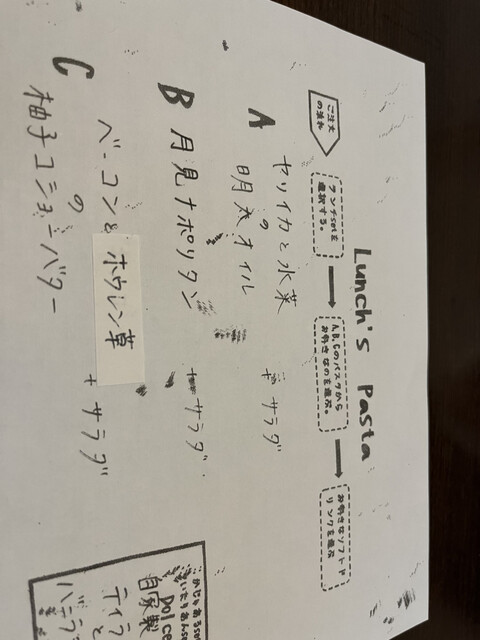 Lunch's Pasta
ご注文
の流れ
ランチsetを
選択する。
A,B,Cのパスタから
お好きなのを選ぶ。
お好きなソフトド
リンクを選ぶ
A ヤリイカと水菜
の
明太オイル + サラダ
B 月見ナポリタン + サラダ
C ベーコン& ホウレン草
の
柚子コショーバター + サラダ
Dolce
自家製
ティラ
と
バニラ